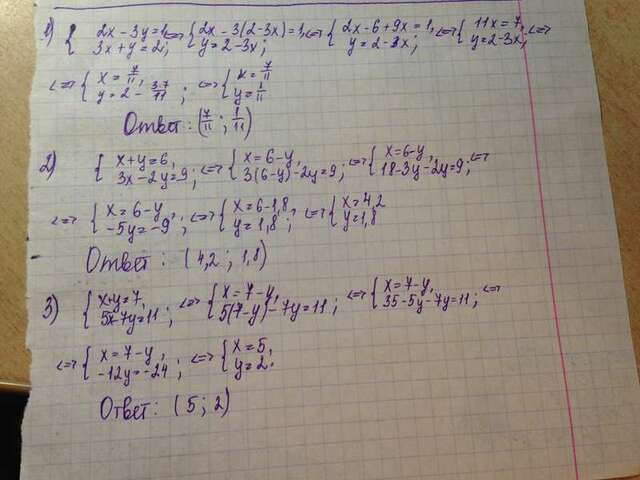 1) { 2x - 3y = 1, 3x + y = 2; <=> { 2x - 3(2 - 3x) = 1, y = 2 - 3x; <=> { 2x - 6 + 9x = 1, y = 2 - 3x; <=> { 11x = 7, y = 2 - 3x; <=>
<=> { x = 7/11, y = 2 - 3·7/11; <=> { x = 7/11 y = 1/11
Ответ: (7/11; 1/11)
2) { x + y = 6, 3x - 2y = 9; <=> { x = 6 - y, 3(6 - y) - 2y = 9; <=> { x = 6 - y, 18 - 3y - 2y = 9; <=>
<=> { x = 6 - y, -5y = -9; <=> { x = 6 - 1,8 y = 1,8; <=> { x = 4,2 y = 1,8
Ответ: (4,2; 1,8)
3) { x + y = 7, 5x - 7y = 11; <=> { x = 7 - y, 5(7 - y) - 7y = 11; <=> { x = 7 - y, 35 - 5y - 7y = 11; <=>
<=> { x = 7 - y, -12y = -24; <=> { x = 5, y = 2.
Ответ: (5; 2)